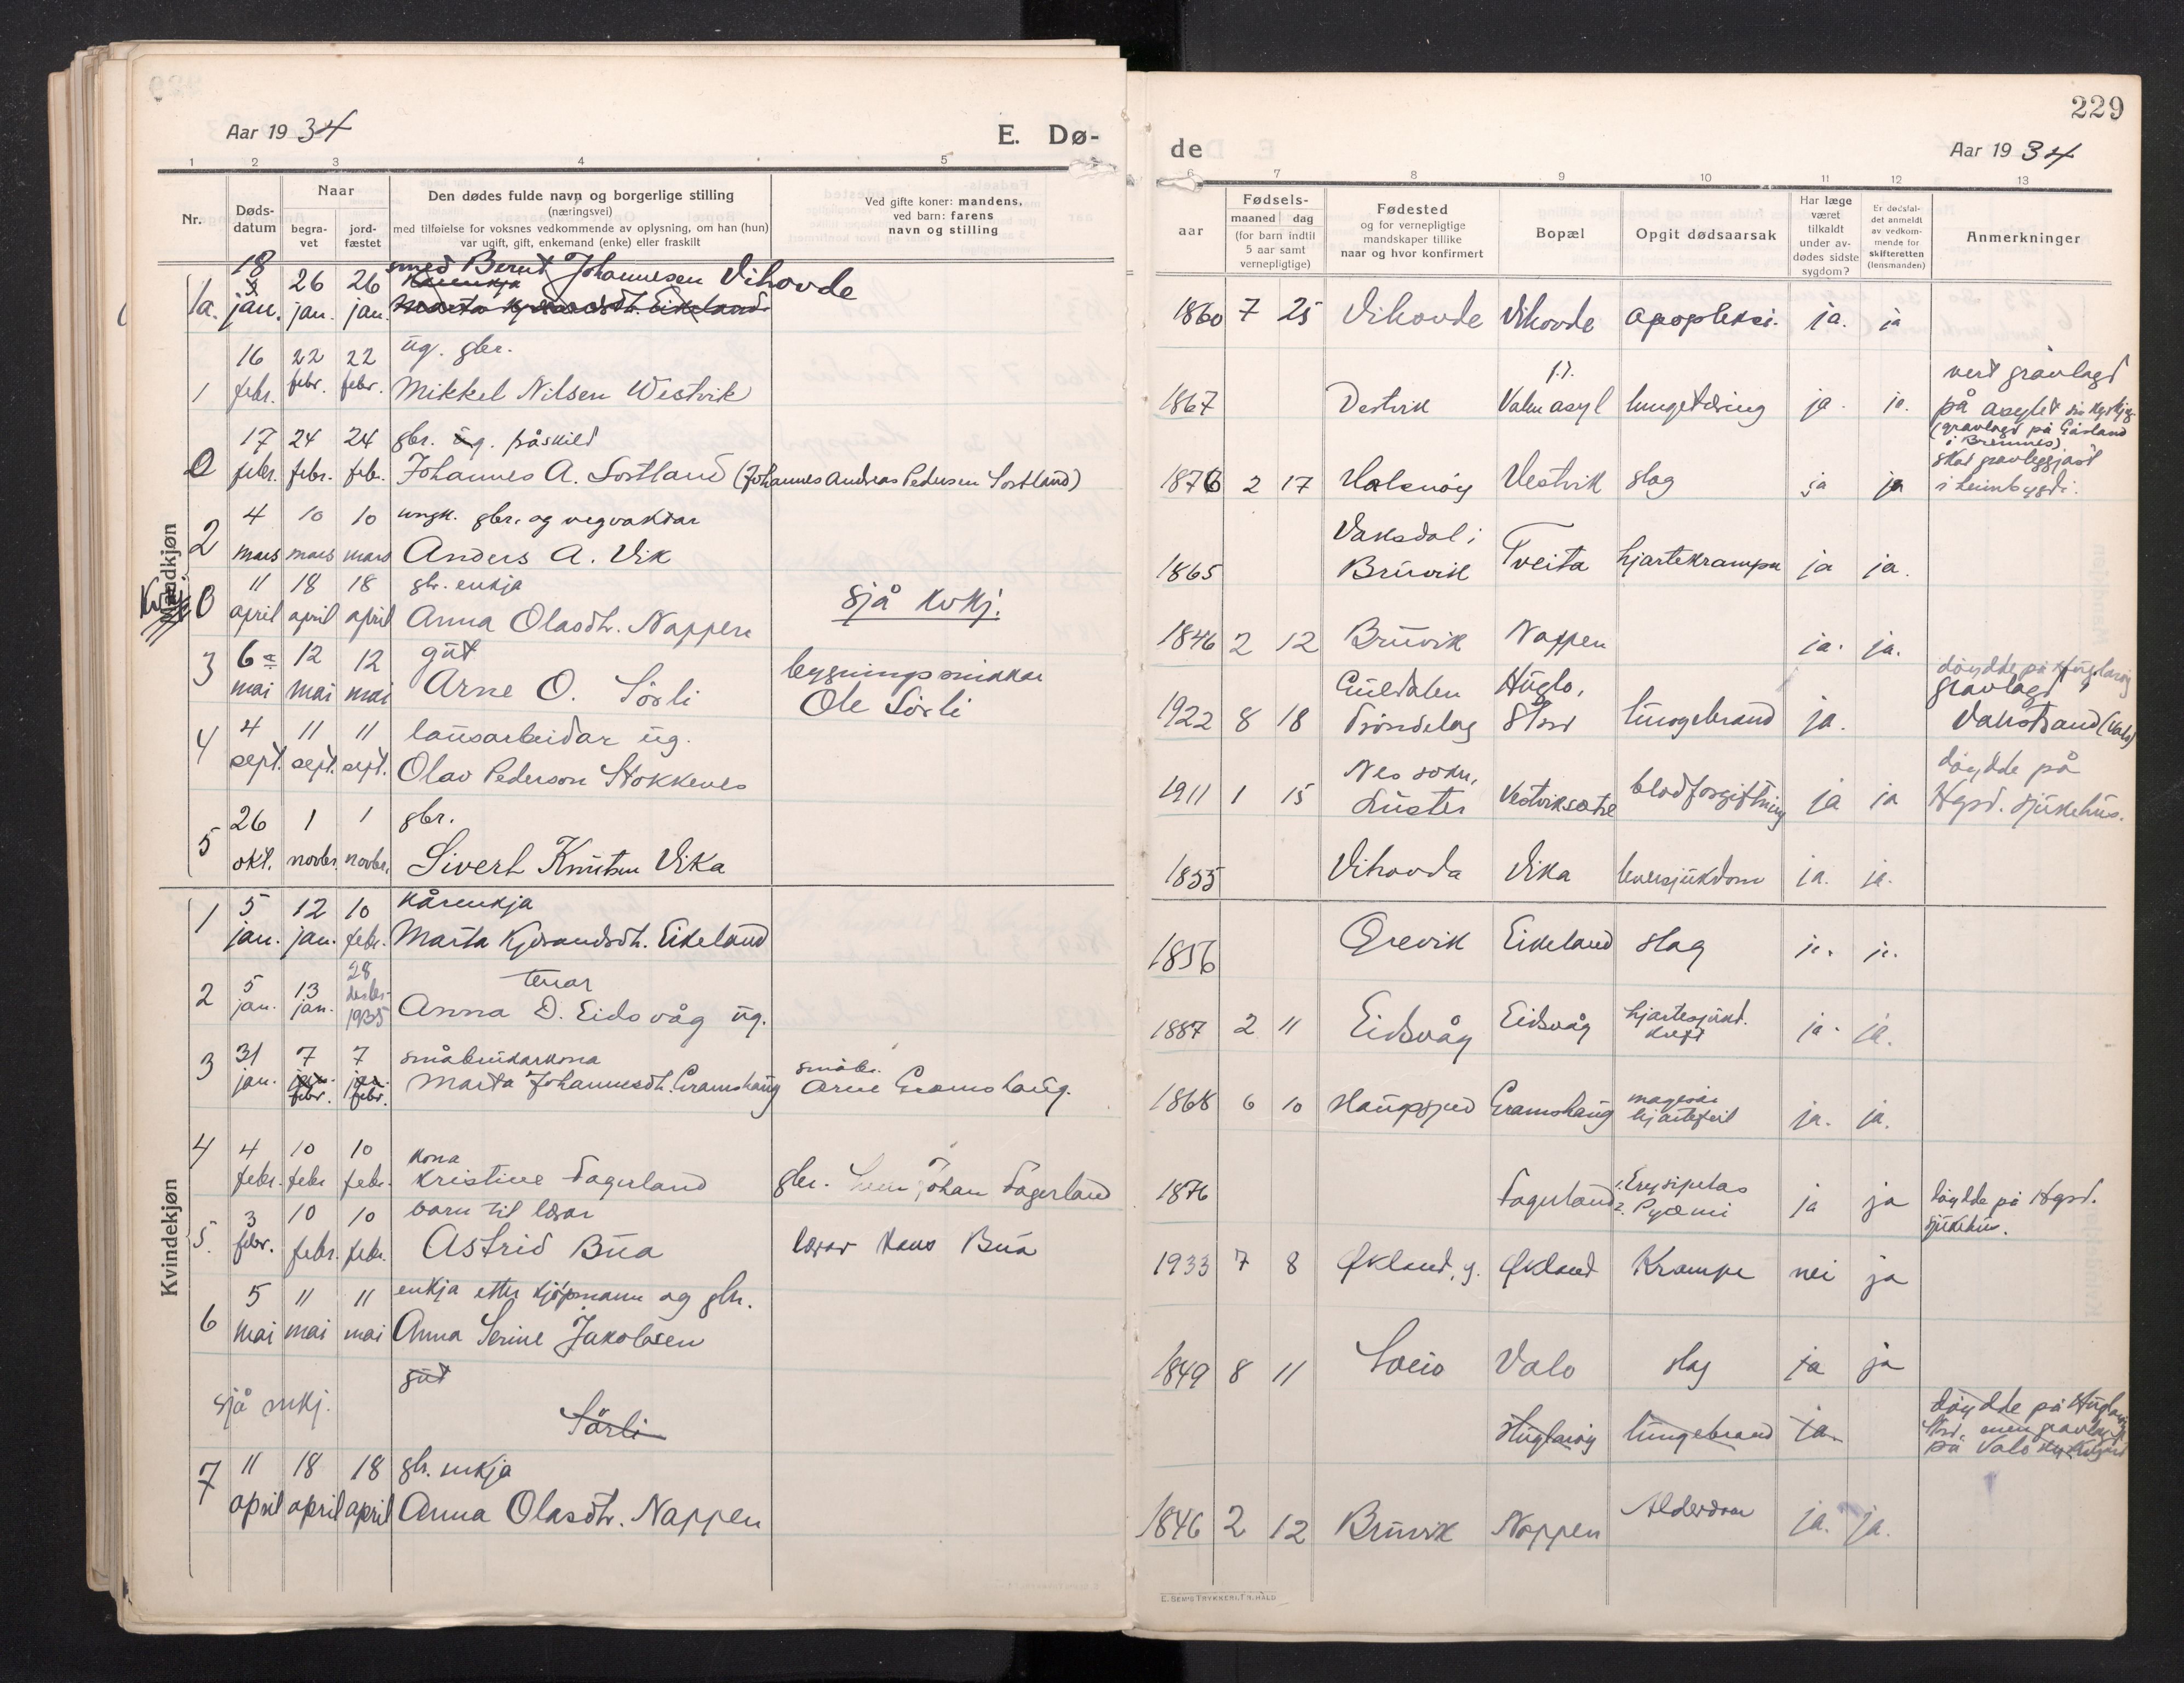 229
Aar 19 34
E. Dø-
de
Aar 19 34
1 2 3 4 5
6 7 8 9 10 11 12 13
Nr.
Døds-
datum
Naar
begra-
vet
jord-
fæstet
Den dødes fulde navn og borgerlige stilling
(næringsvei)
med tilføielse for voksnes vedkommende av oplysning, om han (hun)
var ugift, gift, enkemand (enke) eller fraskilt
Ved gifte koner: mandens,
ved barn: farens
navn og stilling
aar
Fødsels-
maaned dag
(for barn indtil
5 aar samt
vernepligtige)
Fødested
og for vernepligtige
mandskaper tillike
naar og hvor konfirmert
Bopæl
Opgit dødsaarsak
Har læge
været
tilkaldt
under av-
dødes sidste
sygdom?
Er dødsfal-
det anmeldt
av vedkom-
mende for
skifteretten
(lensmanden)
Anmerkninger
Mandkjøn
18 26 26 smed Bernt Johannesen Vihovde
Kårenkja
1a. jan. jan. jan. Marta Kjerandsdt. Eikeland
1860 7 25 Vihovde Vihovde apopleksi. ja. ja
16 22 22 ug. gbr.
1 febr. febr. febr. Mikkel Nilsen Westvik
1867 Vestvik Valen asyl lungetæring ja. ja.
vert gravlagd
på asylet
(gravlagd på Gåsland
i Bremnes)
17 24 24 gbr. ug. fråskild
0 febr. febr. febr. Johannes A. Sortland (Johannes Andreas Pedersen Sortland)
1876 2 17 Halsnøy Vestvik slag ja ja
skal gravleggjast
i heimbygdi.
4 10 10 ungk. gbr. og vegvaktar
2 mars mars mars Anders A. Vik
1865 Vaksdal i
Bruvik Tveita hjartekrampe ja ja.
11 18 18 gbr. enkja
0 april april april Anna Olasdtr. Nappen
sjå kvkj.
1846 2 12 Bruvik Nappen ja. ja.
6 12 12 gut
3 mai mai mai Arne O. Sörli
bygningssnikkar
Ole Sörli
1922 8 18 Guldalen
Trøndelag Huglo,
Stord lungebrand ja.
døydde på Huglarøy
gravlagd
Valestrand (Valo)
4 11 11 lausarbeidar ug.
4 sept. sept. sept. Olav Pederson Stokkenes
1911 1 15 Nes sokn,
Luster Vestviksætre blodforgiftning ja ja
døydde på
Hgsd. sjukehus.
26 1 1 gbr.
5 okt. novbr. novbr. Sivert Knutsen Vika
1855 Vihovda Vika leversjukdom ja. ja.
Kvindekjøn
5 12 10 kårenkja
1 jan. jan. febr. Marta Kjerandsdt. Eikeland
1856 Grevik Eikeland slag ja. ja.
5 13 28 tenar
2 jan. jan. desbr. 1935 Anna D. Eidsvåg ug.
1887 2 11 Eidsvåg Eidsvåg hjartesjukd.
kreft ja. ja.
31 7 7 småbrukarkona
3 jan. febr. febr. Marta Johannesdt. Gramshaug
småbr.
Arne Gramshaug.
1868 6 10 Haugsgjerd Gramshaug magesår
hjartefeil ja. ja.
4 4 10 10 kona
febr. febr. febr. Kristine Fagerland
gbr. Johan Fagerland
1876 Fagerland 1. Erysipelas
2. Pyæmi ja ja døydde på Hgsd.
sjukehus.
3 10 10 barn til lærar
5. febr. febr. febr. Astrid Bua
lærar Hans Bua
1933 7 8 Økland, y. Økland Krampe nei ja
5 11 11 enkja etter kjøpmann og gbr.
6 mai mai mai Anna Serine Jakobsen
1849 8 11 Sveio Valo slag ja ja
gut
sjå mkj.
Sörli
Huglarøy lungebrand ja.
døydde på Huglarøy
Stord, men gravlagd
på Valo
11 18 18 gbr. enkja
7 april april april Anna Olasdtr. Nappen
1846 2 12 Bruvik Nappen Alderdom ja. ja.
E. SEM'S TRYKKERI, F'R.HALD